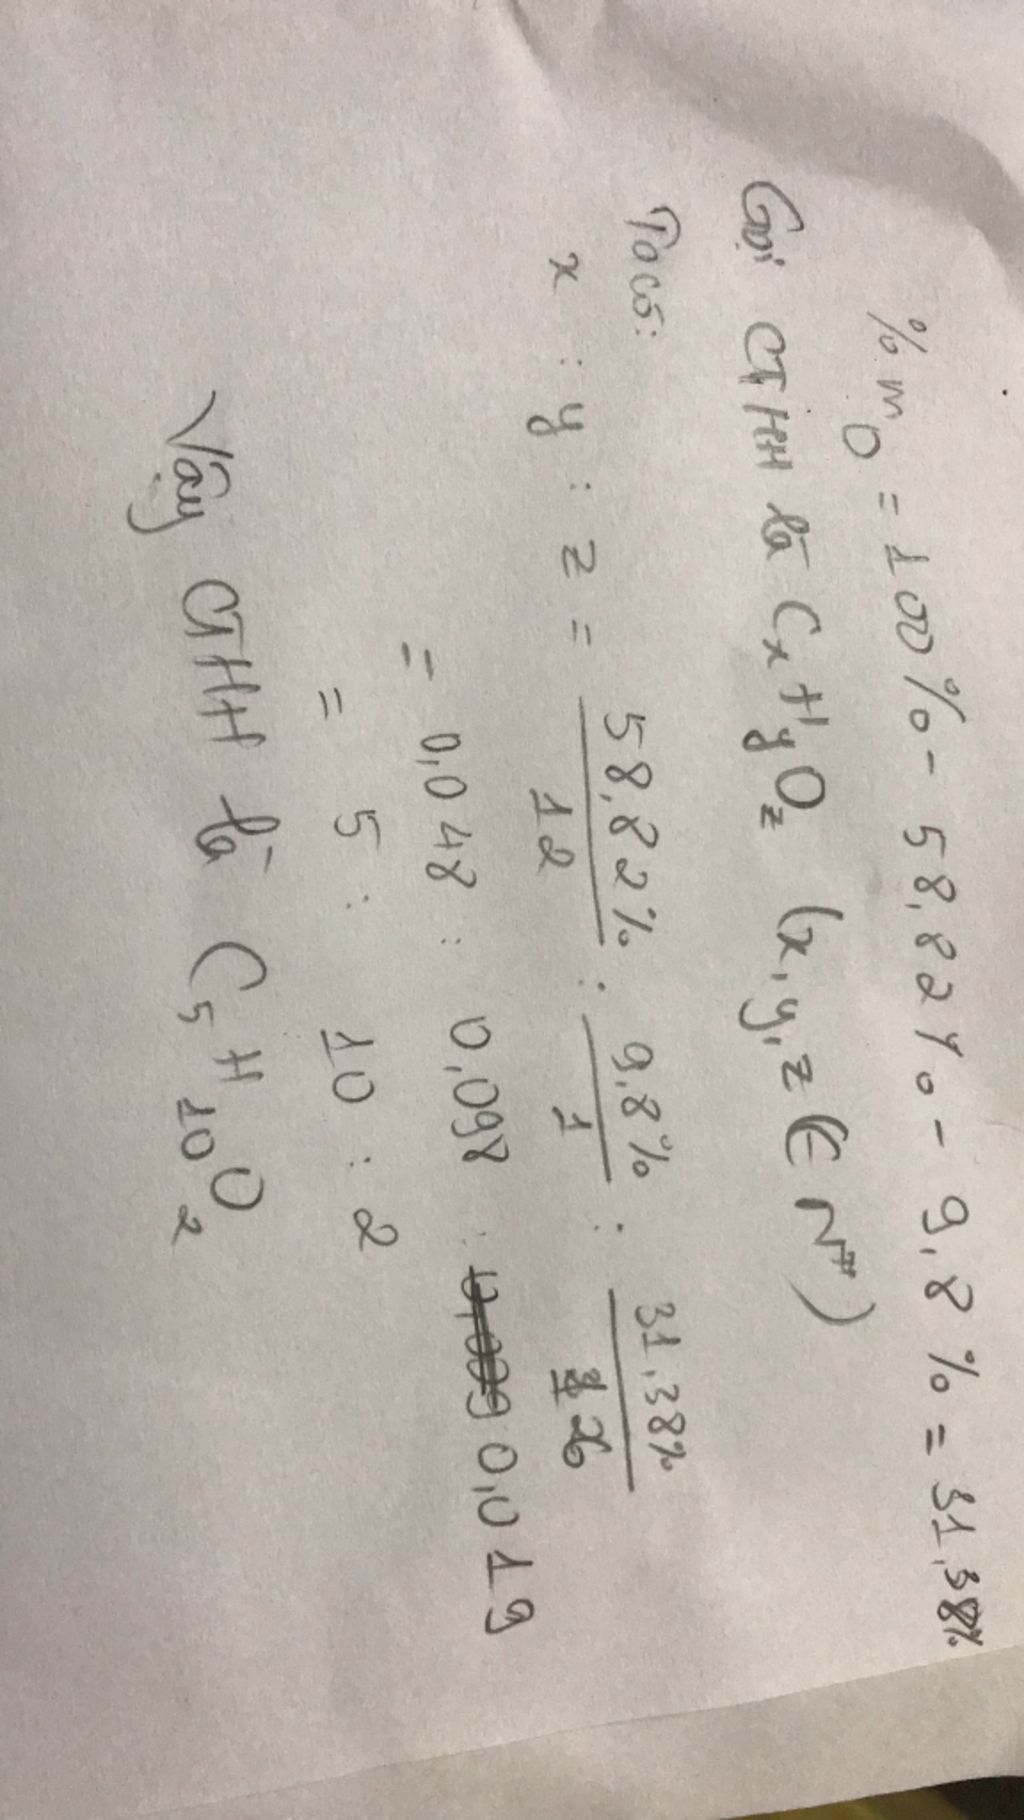 % m O = 100% - 58,82% - 9,8% = 31,38%
Gọi CTHH là CxHyOz (x,y,z ∈ N*)
Ta có:
x : y : z = 58,82%/12 : 9,8%/1 : 31,38%/16
= 0,048 : 0,098 : 0,019
= 5 : 10 : 2
Vậy CTHH là C5H10O2